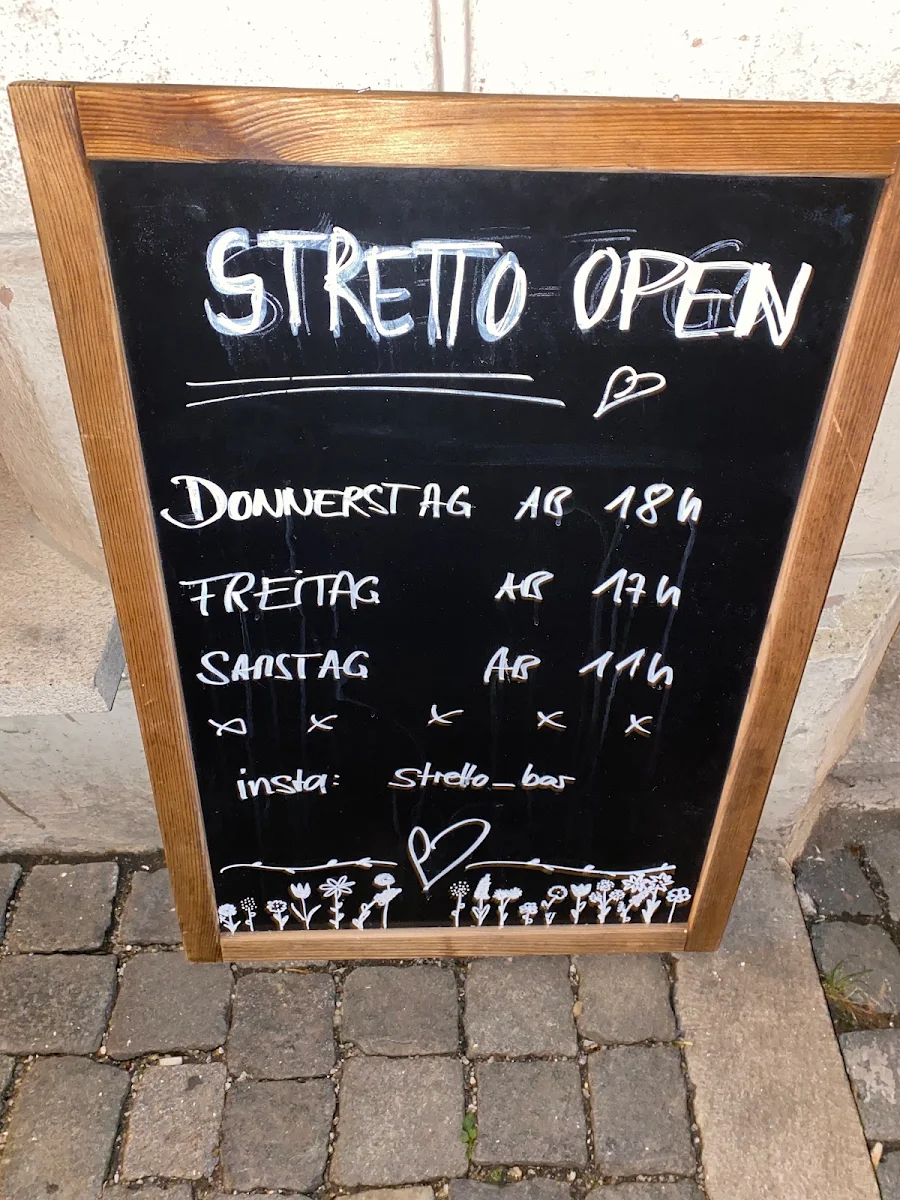 STRETTO OPEN
DONNERSTAG AB 18h
FREITAG AB 17h
SAMSTAG AB 11h
insta: stretto_bar